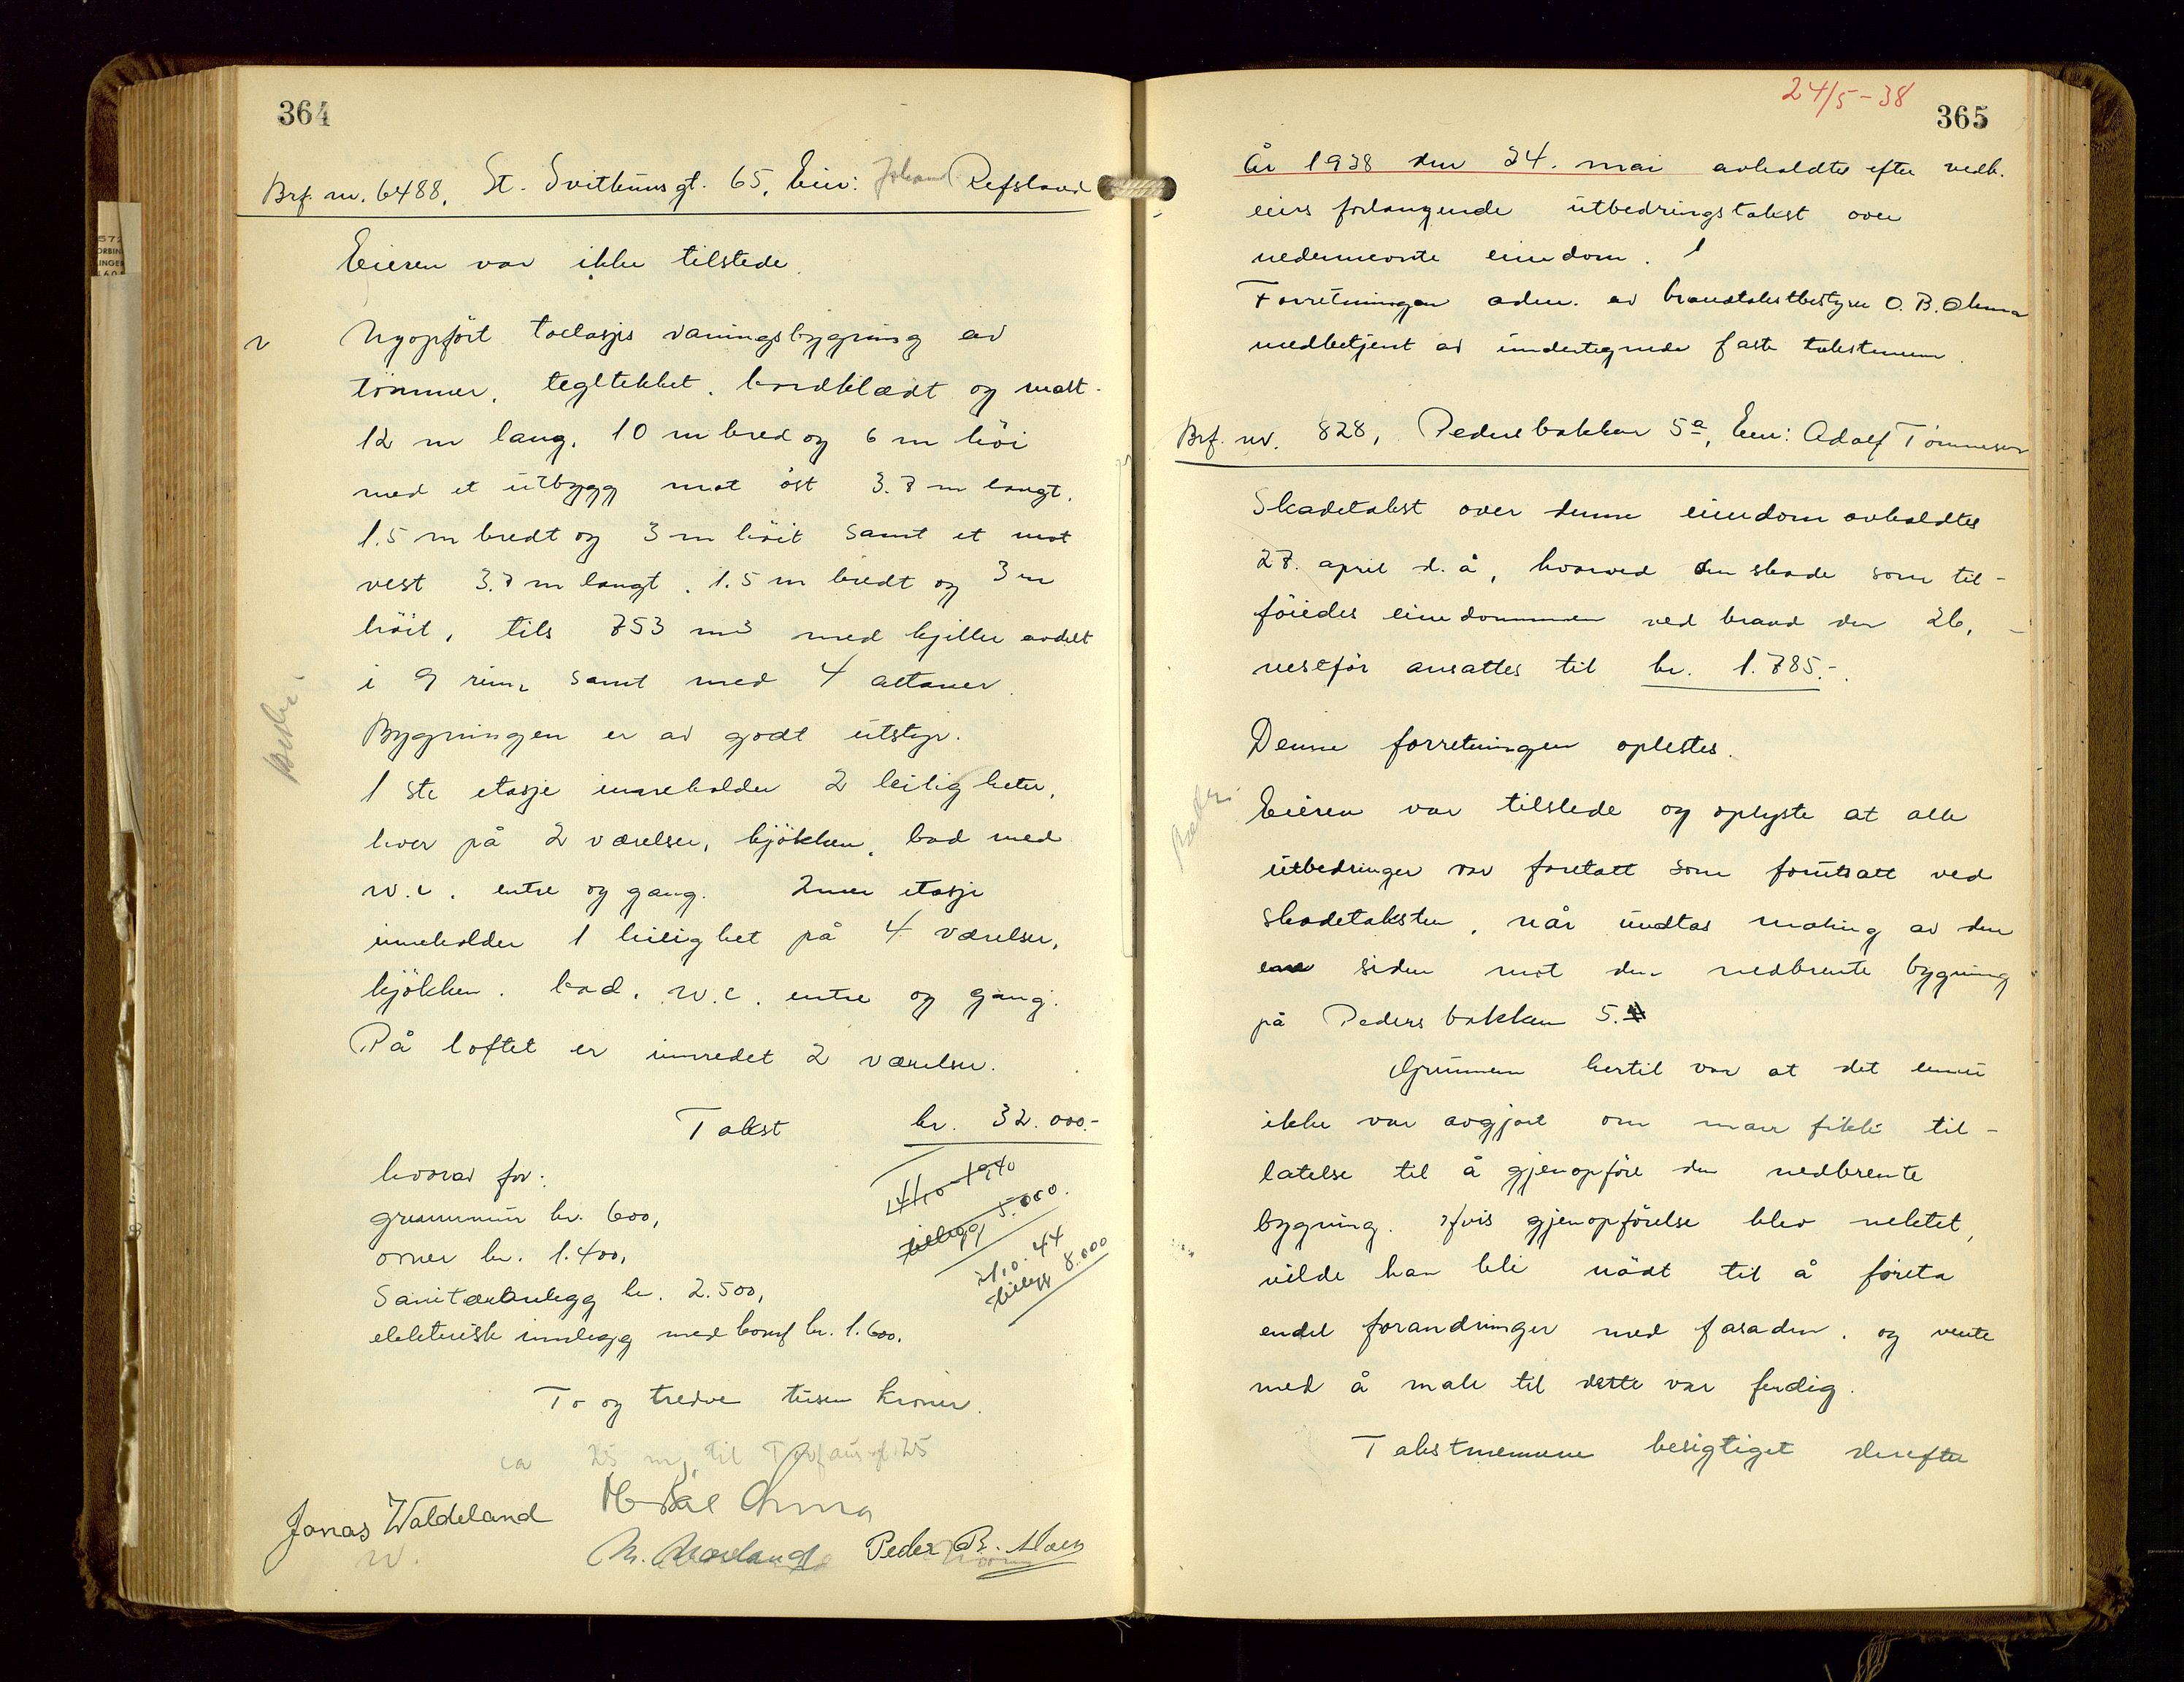 364
Brf. nr. 6488, St. Svithunsgt. 65, Eier: Johan Refsland
Eieren var ikke tilstede.
Nyopført toetasjes våningsbygning av
tømmer, tegltekket, bordklædt og malt
12 m lang, 10 m bred og 6 m höi
med et utbygg mot öst 3.7 m langt,
1.5 m bredt og 3 m höit samt et mot
vest 3.7 m langt, 1.5 m bredt og 3 m
höit, tils 753 m3 med kjeller avdelt
i 9 rum, samt med 4 altaner.
Bygningen er av godt utstyr.
1 ste etasje inneholder 2 leiligheter,
hver på 2 værelser, kjökken, bad med
w.c. entre og gang. 2nen etasje
inneholder 1 leilighet på 4 værelser,
kjökken, bad, w.c. entre og gang.
På loftet er innredet 2 værelser.
Takst kr. 32.000.-
hvorav for:
grunnmur kr. 600,
ovner kr. 1.400,
Sanitæranlegg kr. 2.500,
elektrisk innlegg med komf kr. 1.600.
14/10-1940
tillegg 5.000.
2/10.44
tillegg 8.000
To og tredve tusen kroner.
ca 25 m til
Jonas Waldeland
Peder B. Moen
24/5-38
365
År 1938 den 24. mai avholdtes efter vedk.
eiers forlangende utbedringstakst over
nedennevnte eiendom.
Forretningen adm. av brandtakstbestyrer O. B. Ohma
medbetjent av undertegnede faste takstmenn.
Brf. nr. 828, Pedersbakken 5a, Eier: Adolf Tönnesen
Skadetakst over denne eiendom avholdtes
27. april d. å, hvorved den skade som til-
föiedes eiendommen ved brand den 26,
nestfør ansattes til kr. 1.785.-.
Denne forretningen oplestes.
Eieren var tilstede og oplyste at alle
utbedringer var foretatt som forutsatt ved
skadetaksten, når undtas maling av den
ene siden mot den nedbrente bygning
på Peders bakken 5.
Grunnen hertil var at det ennu
ikke var avgjort om man fikk til-
latelse til å gjenopføre den nedbrente
bygning. Hvis gjenopförelse blev nektet,
vilde han bli nödt til å foreta
endel forandringer med fasaden, og vente
med å male til dette var ferdig.
Takstmennene besigtiget derefter